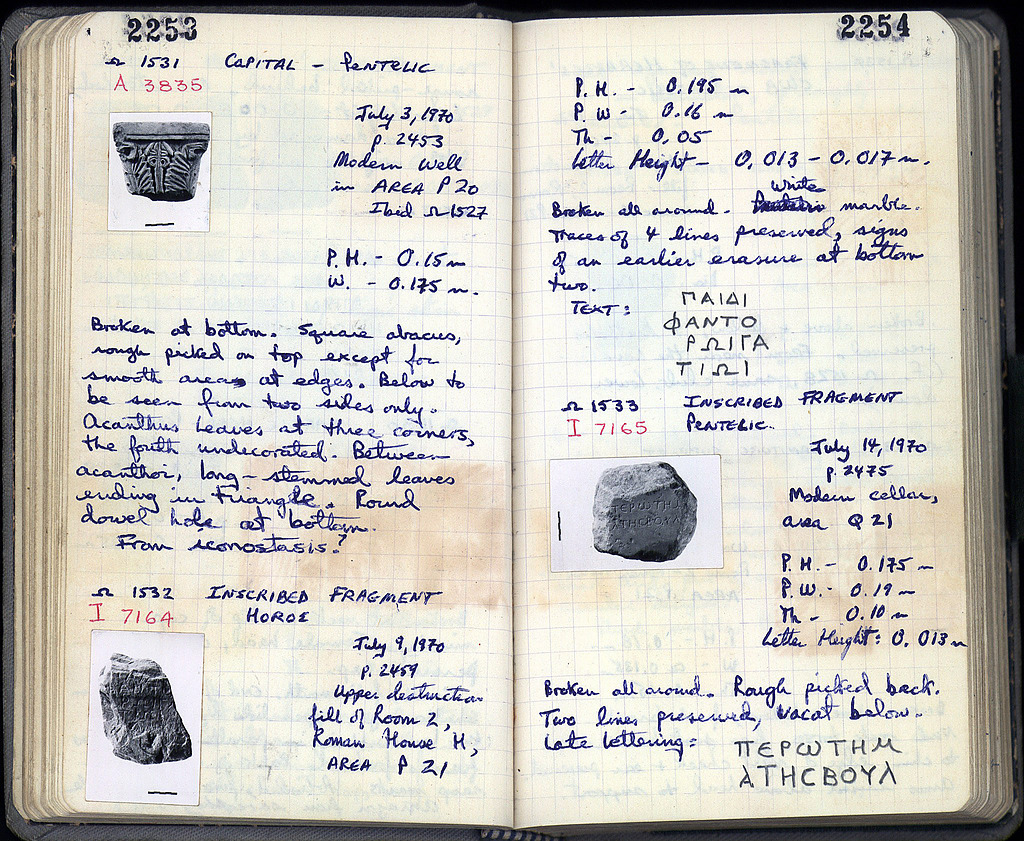 2253
Ω 1531 CAPITAL - PENTELIC
A 3835
July 3, 1970
p. 2453
Modern Well
in AREA P 20
Ibid Ω 1527
P. H. - 0.15 m
W. - 0.175 m.
Broken at bottom. Square abacus,
rough picked on top except for
smooth areas at edges. Below to
be seen from two sides only.
Acanthus leaves at three corners,
the fourth undecorated. Between
acanthoi, long-stemmed leaves
ending in triangle. Round
dowel hole at bottom.
From iconostasis?
Ω 1532 INSCRIBED FRAGMENT
I 7164 HOROS
July 9, 1970
p. 2459
Upper destruction
fill of Room 2,
Roman House H,
AREA P 21
2254
P. H. - 0.195 m
P. W - 0.16 m
Th - 0.05
Letter Height - 0.013 - 0.017 m.
White
Broken all around. marble.
Traces of 4 lines preserved, signs
of an earlier erasure at bottom
two.
TEXT:
ΠΑΙΔΙ
ΦΑΝΤΟ
ΡΩΙΓΑ
ΤΙΩΙ
Ω 1533 INSCRIBED FRAGMENT
I 7165 PENTELIC.
July 14, 1970
p. 2475
Modern cellar,
area Q 21
P. H. - 0.175 m
P. W. - 0.19 m
Th - 0.10 m
Letter Height: 0.013 m
Broken all around. Rough picked back.
Two lines preserved, vacat below.
Late lettering:
ΠΕΡΩΤΗΜ
ΛΤΗCΒΟΥΛ